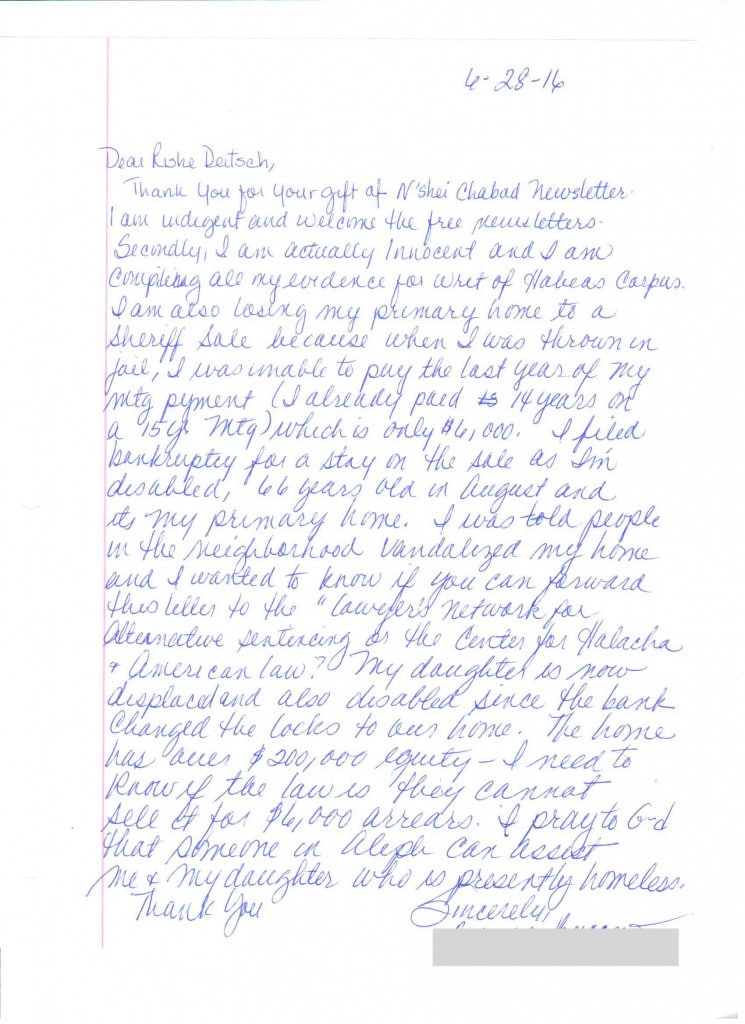 6-28-16
Dear Rishe Deitsch,
Thank you for your gift of N'shei Chabad Newsletter.
I am indigent and welcome the free newsletters.
Secondly, I am actually Innocent and I am
compliling all my evidence for writ of Habeas Corpus.
I am also losing my primary home to a
Sheriff Sale because when I was thrown in
jail, I was unable to pay the last year of my
mtg pyment (I already paid 14 years on
a 15 yr Mtg) which is only $6,000. I filed
bankruptcy for a stay on the sale as I'm
disabled, 66 years old in August and
its my primary home. I was told people
in the neighborhood vandalized my home
and I wanted to know if you can forward
this letter to the "Lawyer's Network for
Alternative sentencing or the Center for Halacha
& American law? My daughter is now
displaced and also disabled since the bank
changed the locks to our home. The home
has over $200,000 equity - I need to
know if the law is they cannot
sell it for $6,000 arrears. I pray to G-d
that someone in Aleph can assist
me & my daughter who is presently homeless.
Thank you Sincerely,